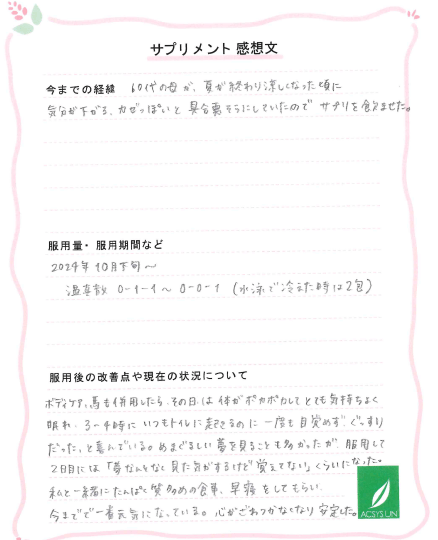 サプリメント 感想文
今までの経緯 60代の母が、夏が終わり涼しくなった頃に
気分が下がる、カゼっぽいと 具合悪そうにしていたので サプリを飲ませました。
服用量・服用期間など
2024年 10月下旬〜
温真散 0-1-1〜 0-0-1 (水泳で冷えた時は2包)
服用後の改善点や現在の状況について
ボディケア、馬も併用したら、その日は 体がポカポカしてとても気持ちよく
眠れ、3〜4時に いつもトイレに起きてるのに 一度も目覚めず ぐっすり
だった、と喜んでいる。めまぐるしい夢を見ることも多かったが、服用して
2日目には「夢なんとなく見た気がするけど覚えてない」くらいになった。
私と一緒にたんぱく質多めの食事、早寝をしてもらい、
今までで一番元気になっている。心がざわつかなくなり安定した。
ACSYS LIN